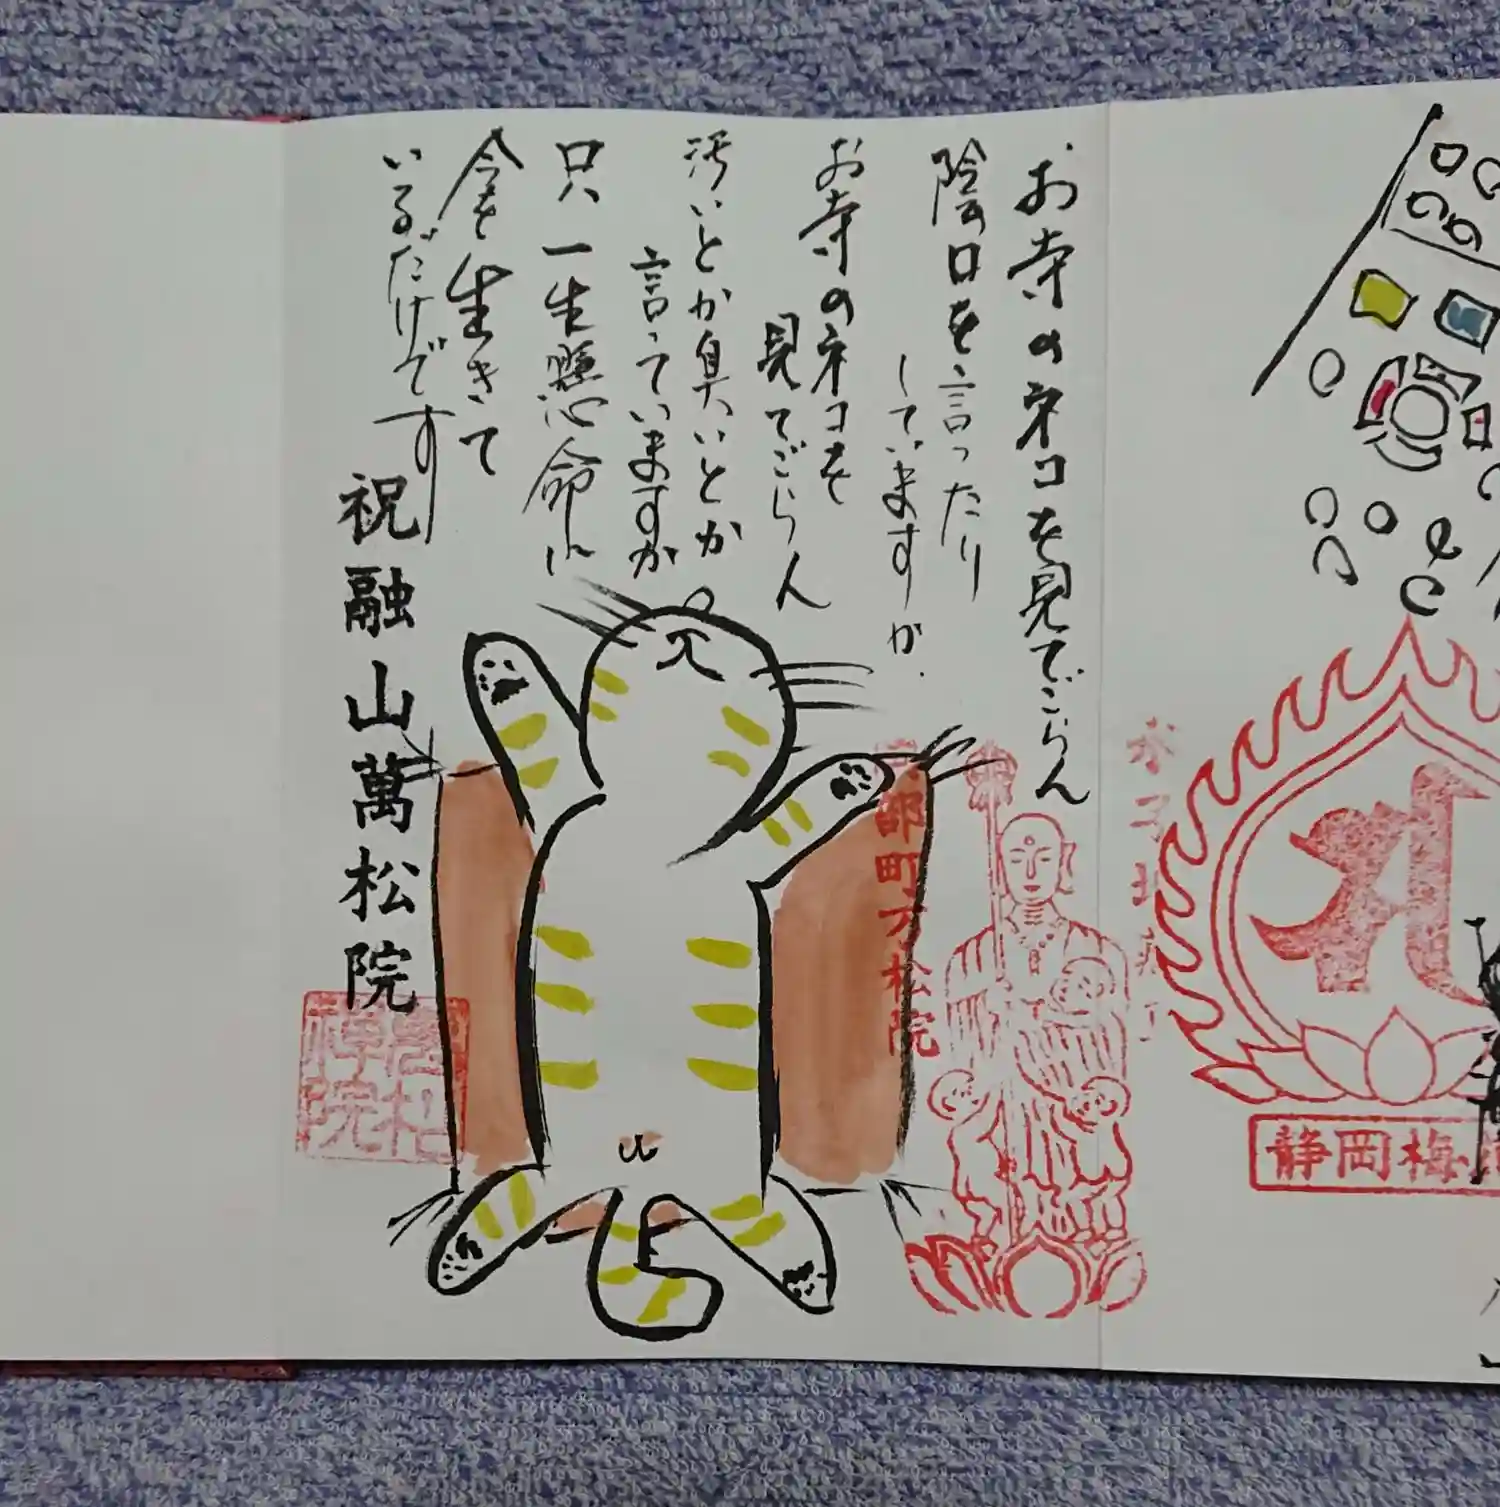 お寺のネコを見てごらん
陰口を言ったり
していますか。
お寺のネコを
見てごらん
汚いとか臭いとか
言っていますか。
只一生懸命に
今を生きて
いるだけです
祝融山萬松院
岡部町万松院
静岡梅